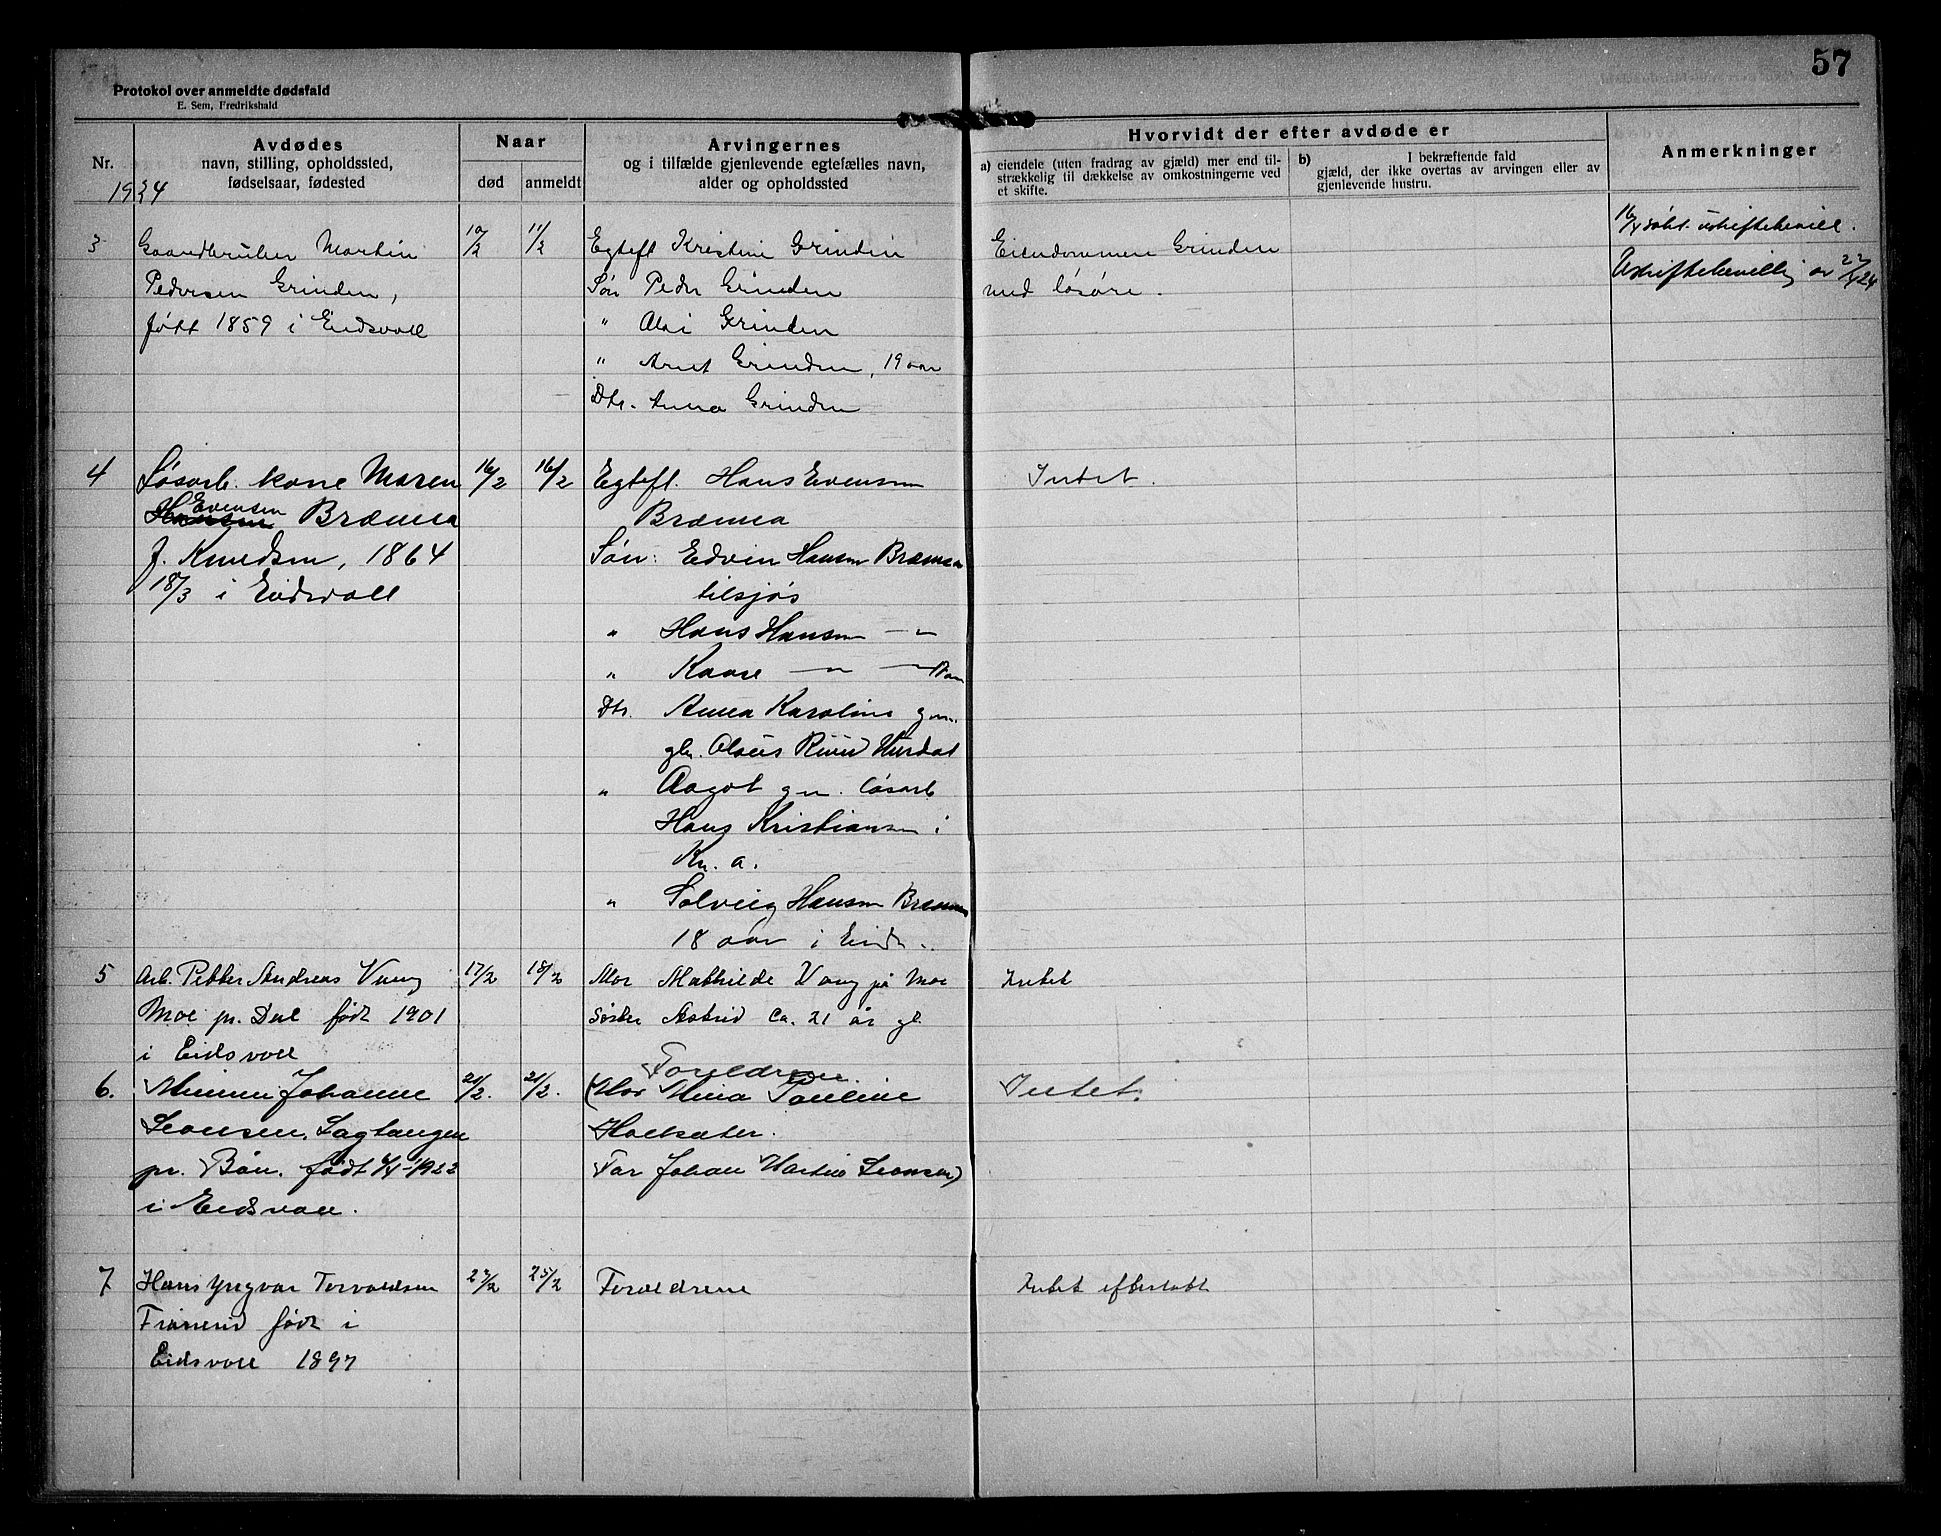 57
Protokol over anmeldte dødsfald
E. Sem, Fredrikshald
Nr.
1924
Avdødes
navn, stilling, opholdssted,
fødselsaar, fødested
Naar
død
anmeldt
Arvingernes
og i tilfælde gjenlevende egtefælles navn,
alder og opholdssted
Hvorvidt der efter avdøde er
a) eiendele (uten fradrag av gjæld) mer end til-
strækkelig til dækkelse av omkostningerne ved
et skifte.
b) I bekræftende fald
gjæld, der ikke overtas av arvingen eller av
gjenlevende hustru.
Anmerkninger
3
Gaardbruker Martin
Pedersen Grinden,
født 1859 i Eidsvoll
10/2
11/2
Egtef. Kristine Grinden
Søn Peder Grinden
" Grinden
" Arnt Grinden, 19 aar
Dtr. Anna Grinden
Eiendommen Grinden
med løsøre.
søkt uskiftebevill.
Uskiftebevilling av
4
Løsarb. kone Maren
Hansen Evensen Brænna
f. Knudsen, 1864
18/3 i Eidsvoll
16/2
16/2
Egtef. Hans Evensen
Brænna
Søn: Edvin Hansen Brænna
tilsjøs
" Hans Hansen — " —
" Kaare — " —
Dtr. Anna Karoline gm.
Ruud Hurdal
" Aagot gm. løsarb
Hans Kristiansen i
Kr. a.
" Solveig Hansen Brænna
18 aar i Eids.
Intet.
5
Arb. Petter Andreas Vang
Moe pr. Dal født 1901
i Eidsvoll
17/2
18/2
Mor Mathilde Vang på Moe
Søster Astrid ca. 21 år gl.
Intet
6.
Johanne
Leonsen, Sagtangen
pr. Bøn. født 1922
i Eidsvoll.
21/2.
Forældrene.
(Mor Mina Pauline
Holtsæter.
Far Johan Martin Leonsen)
Intet.
7
Hans Yngvar Torvaldsen
født i
Eidsvoll 1897
25/2
Forældrene
Intet efterlatt